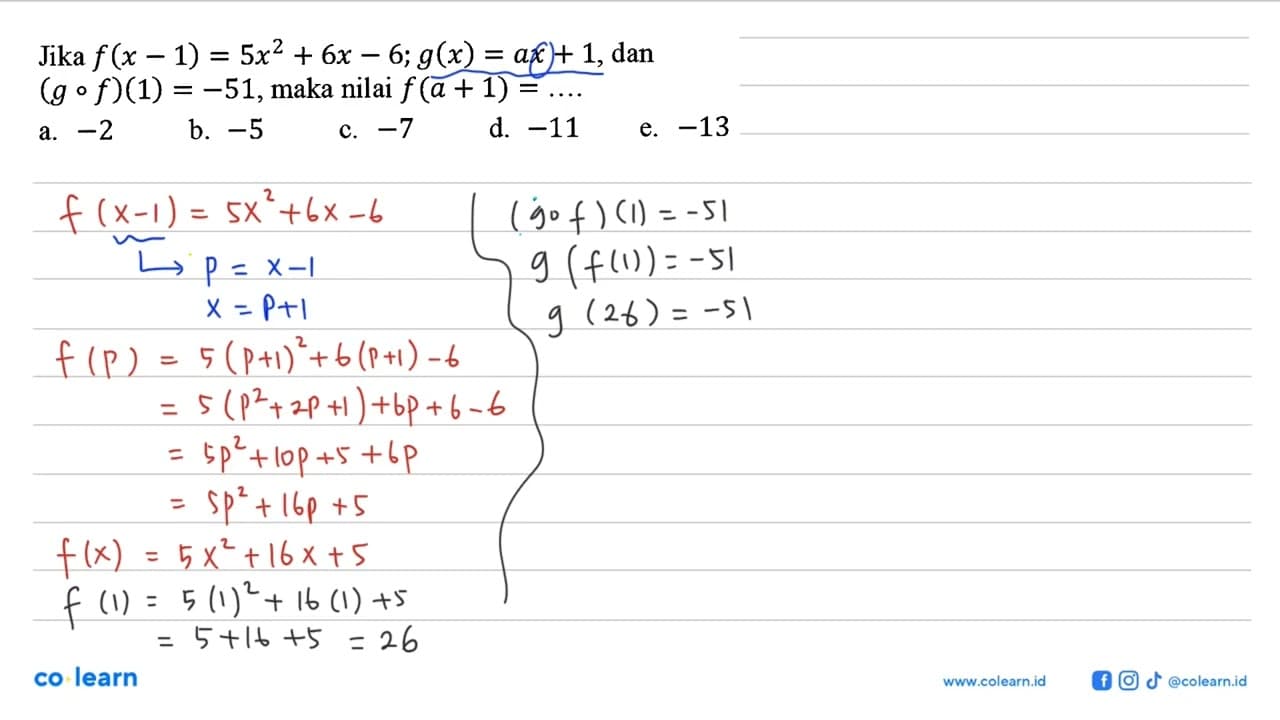 Jika f(x − 1) = 5x² + 6x − 6; g(x) = ax + 1, dan
(g ∘ f)(1) = −51, maka nilai f(a + 1) = ....
a. −2 b. −5 c. −7 d. −11 e. −13
f (x-1) = 5x² + 6x - 6
↳ p = x-1
x = p+1
f(p) = 5(p+1)² + 6(p+1) - 6
= 5(p² + 2p + 1) + 6p + 6 - 6
= 5p² + 10p + 5 + 6p
= 5p² + 16p + 5
f(x) = 5x² + 16x + 5
f (1) = 5(1)² + 16(1) + 5
= 5 + 16 + 5 = 26
(g∘f)(1) = -51
g(f(1)) = -51
g (26) = -51
co learn
www.colearn.id @colearn.id